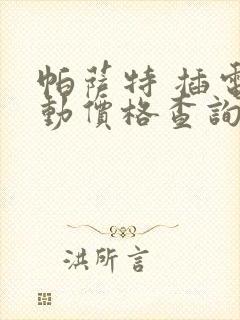 帕薩特 插電
動價格查詢
洪所言